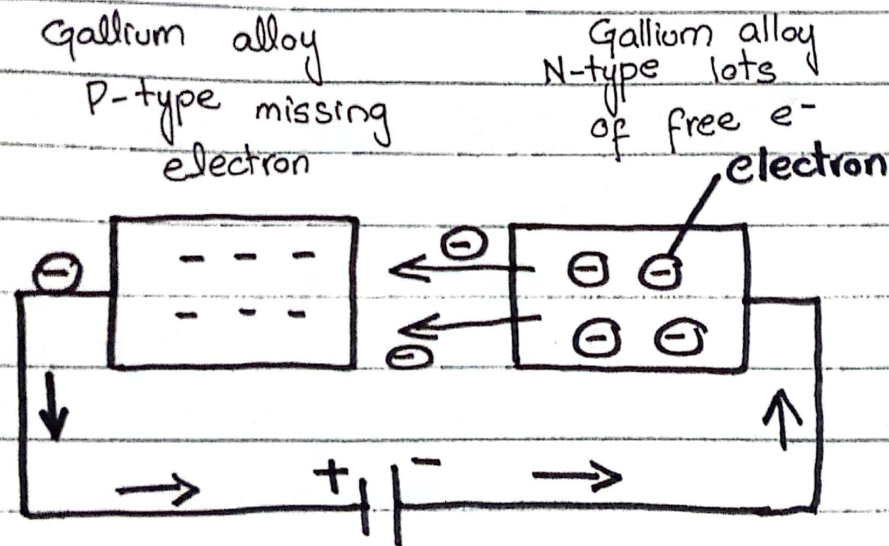 Gallium alloy
P-type missing
electron
Gallium alloy
N-type lots
of free e⁻
electron
⊖ - - - ⊖ ⊖ ⊖
- - - ⊖ ⊖ ⊖
+ -